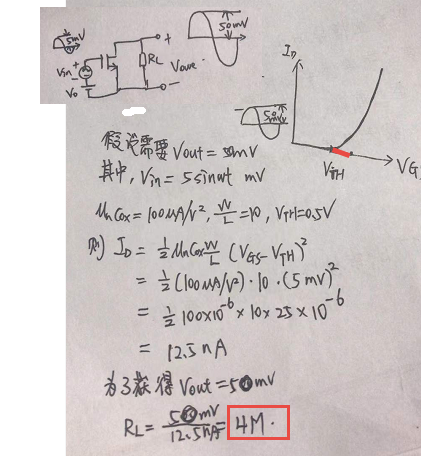 5mV
50mV
+
Vin
+
-
RL
Vout
V0
-
ID
50mV
VTH
VG
假设需要 Vout = 50mV
其中, Vin = 5sinωt mV
UnCox = 100UA/V², W/L = 10, VTH=0.5V
则 ID = 1/2 UnCox W/L (VGS - VTH)²
= 1/2 (100UA/V²) · 10 · (5mV)²
= 1/2 100×10⁻⁶ × 10 × 25 × 10⁻⁶
= 12.5nA
为了获得 Vout = 50mV
RL = 50mV/12.5nA = 4M.